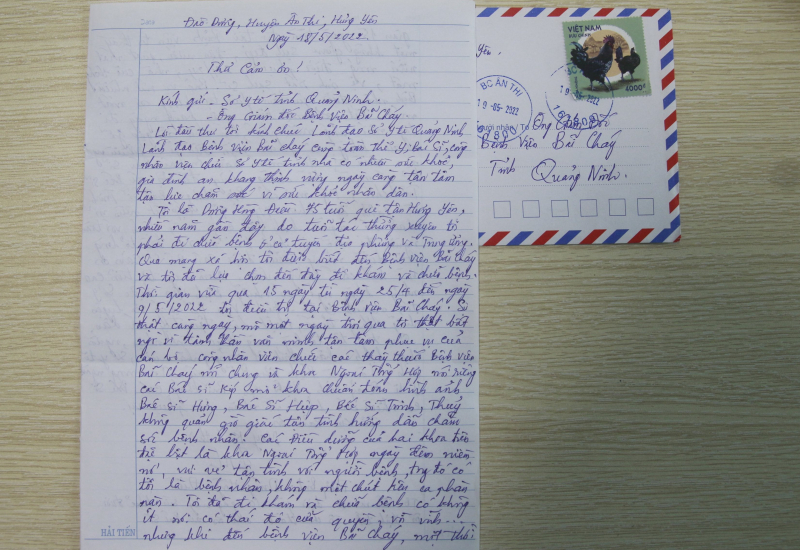 Đào Dương, Huyện Ân Thi, Hưng Yên
Ngày 18/5/2022.
Thư Cảm ơn!
Kính gửi - Sở Y tế tỉnh Quảng Ninh.
- Ông Giám đốc Bệnh Viện Bãi Cháy.
Lời đầu thư tôi kính chúc Lãnh đạo Sở Ytế Quảng Ninh
Lãnh đạo Bệnh Viện Bãi cháy cùng toàn thể Y, Bác Sĩ, công
nhân viên chức Sở Y tế tỉnh nhà có nhiều sức khoẻ,
gia đình an khang thịnh vượng ngày càng tận tâm
tận lực chăm sóc vì sức khoẻ nhân dân.
Tôi là Dương Hồng Điều 75 tuổi quê tận Hưng Yên,
nhiều năm gần đây do tuổi tác thường xuyên tôi
phải đi chữa bệnh ở cả tuyến địa phương và Trung Ương.
Qua mạng xã hội tôi được biết đến Bệnh Viện Bãi Cháy
và tôi đã lựa chọn đến đây đi khám và chữa bệnh.
Thời gian vừa qua 15 ngày từ ngày 25/4 đến ngày
9/5/2022 tôi điều trị tại Bệnh viện Bãi Cháy. Sự
thật càng ngày, mỗi một ngày trôi qua tôi thật bất
ngờ vì tinh thần văn minh tận tâm phục vụ của
cán bộ, công nhân viên chức các thầy thuốc Bệnh viện
Bãi Cháy nói chung và khoa Ngoại Tổng Hợp nói riêng
các Bác sĩ khoa chuẩn đoán hình ảnh
Bác sĩ Hưng, Bác Sĩ Hiệp, Bác Sĩ Trình, Thuỷ
không quản giờ giấc tận tình hướng dẫn chăm
sóc bệnh nhân. Các Điều dưỡng của hai khoa trên
đặc biệt là khoa Ngoại Tổng Hợp ngày đêm niềm
nở, vui vẻ tận tình với người bệnh, trong đó có
tôi là bệnh nhân, không một chút kêu ca phàn
nàn. Tôi đã đi khám và chữa bệnh có không
ít nơi có thái độ cửa quyền, vô vĩnh...
nhưng khi đến bệnh viện Bãi Cháy, một thái
HẢI TIẾN
VIỆT NAM
BƯU CHÍNH
4000đ
Yên,
BC ÂN THI
19-05-2022
19-05-2022
Người nhận/To Ông Giám Đốc
Bệnh Viện Bãi Cháy
Tỉnh Quảng Ninh.